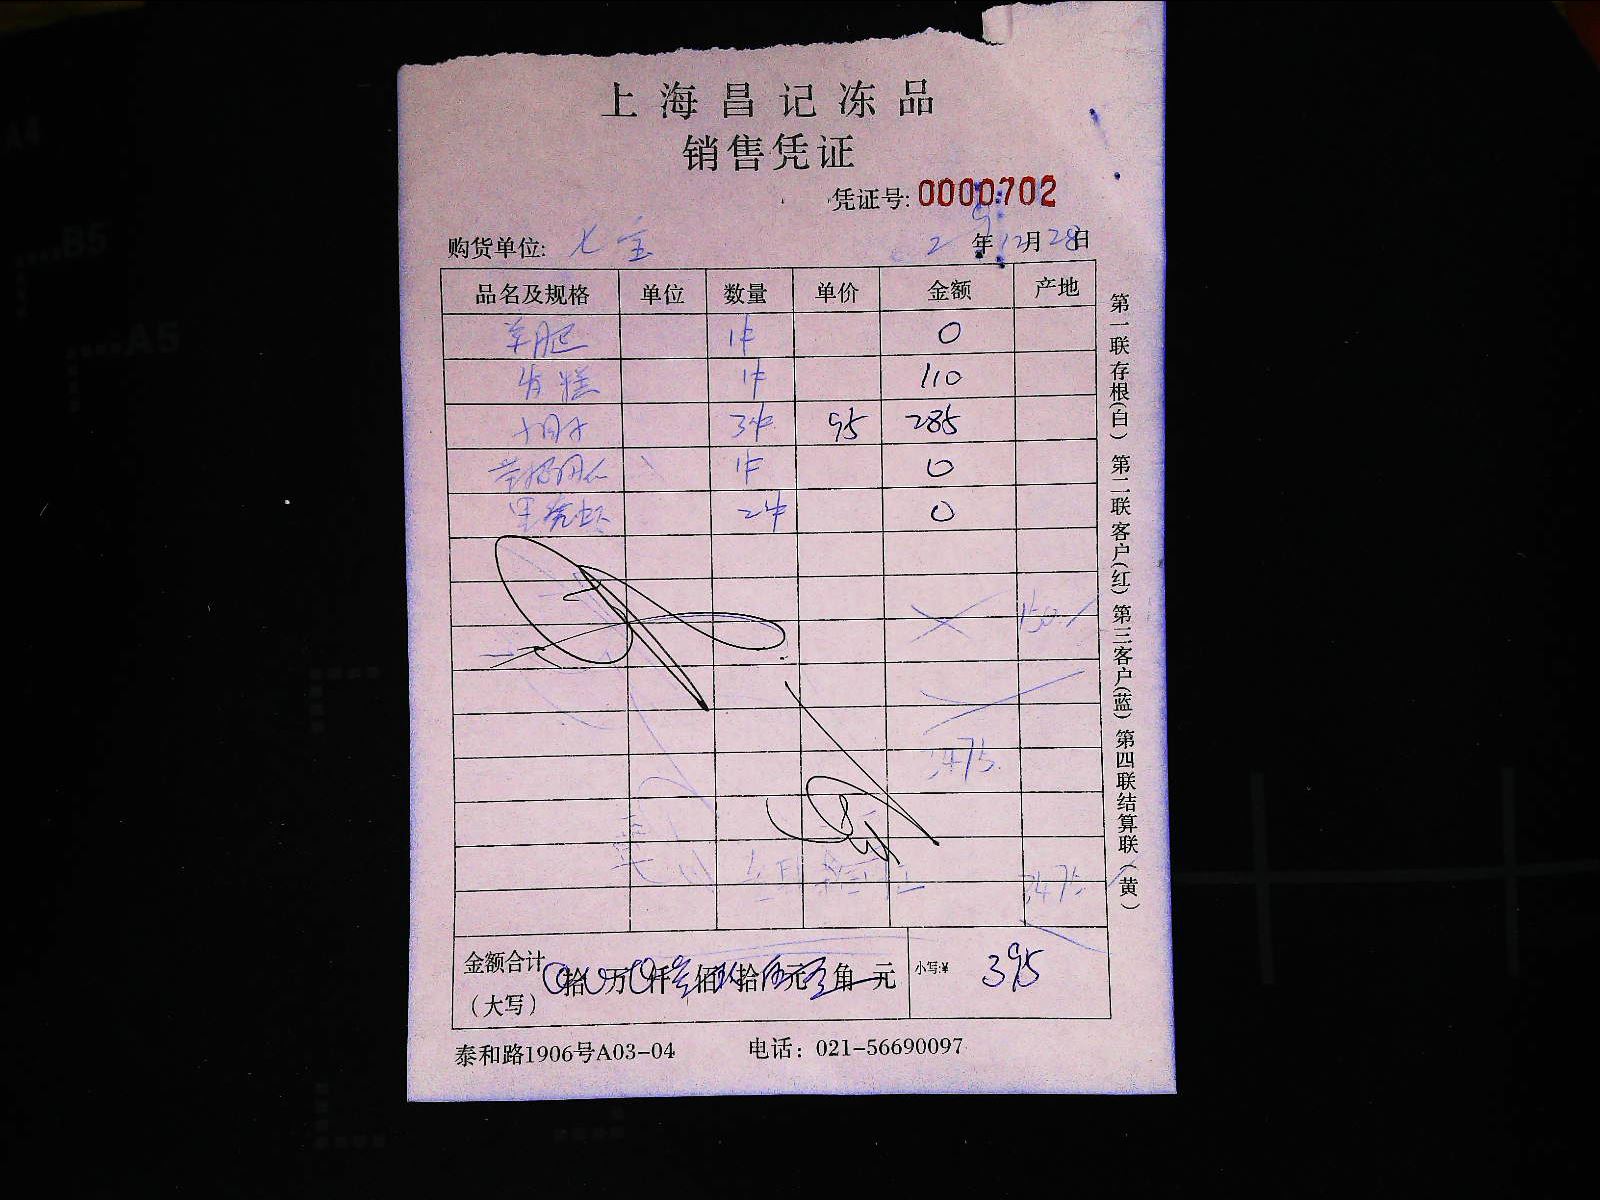 上海昌记冻品
销售凭证
凭证号: 0000702
购货单位: 七宝 年12月28日
品名及规格 单位 数量 单价 金额 产地
羊腿 1件 0
发糕 1件 110
3件 95 285
1件 0
黑虎虾 2件 0
150
3475
3475
金额合计(大写) 0拾0万0仟叁佰玖拾伍元 角 元 小写:¥ 395
泰和路1906号A03-04 电话: 021-56690097
第一联存根(白) 第二联客户(红) 第三客户(蓝) 第四联结算联(黄)